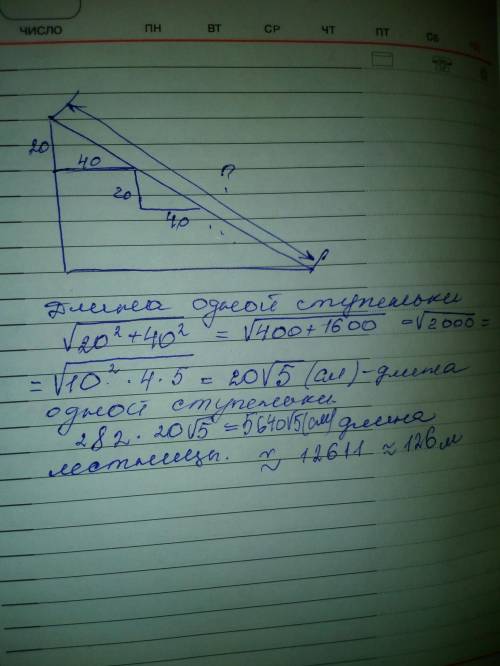 ЧИСЛО ПН ВТ СР ЧТ ПТ СБ
20
40
?
20
40
Длина одной ступеньки
√20² + 40² = √400 + 1600 = √2000 =
= √10² · 4 · 5 = 20√5 (см) - длина
одной ступеньки
282 · 20√5 = 5640√5 (см) длина
лестницы. ≈ 12611 ≈ 126 м